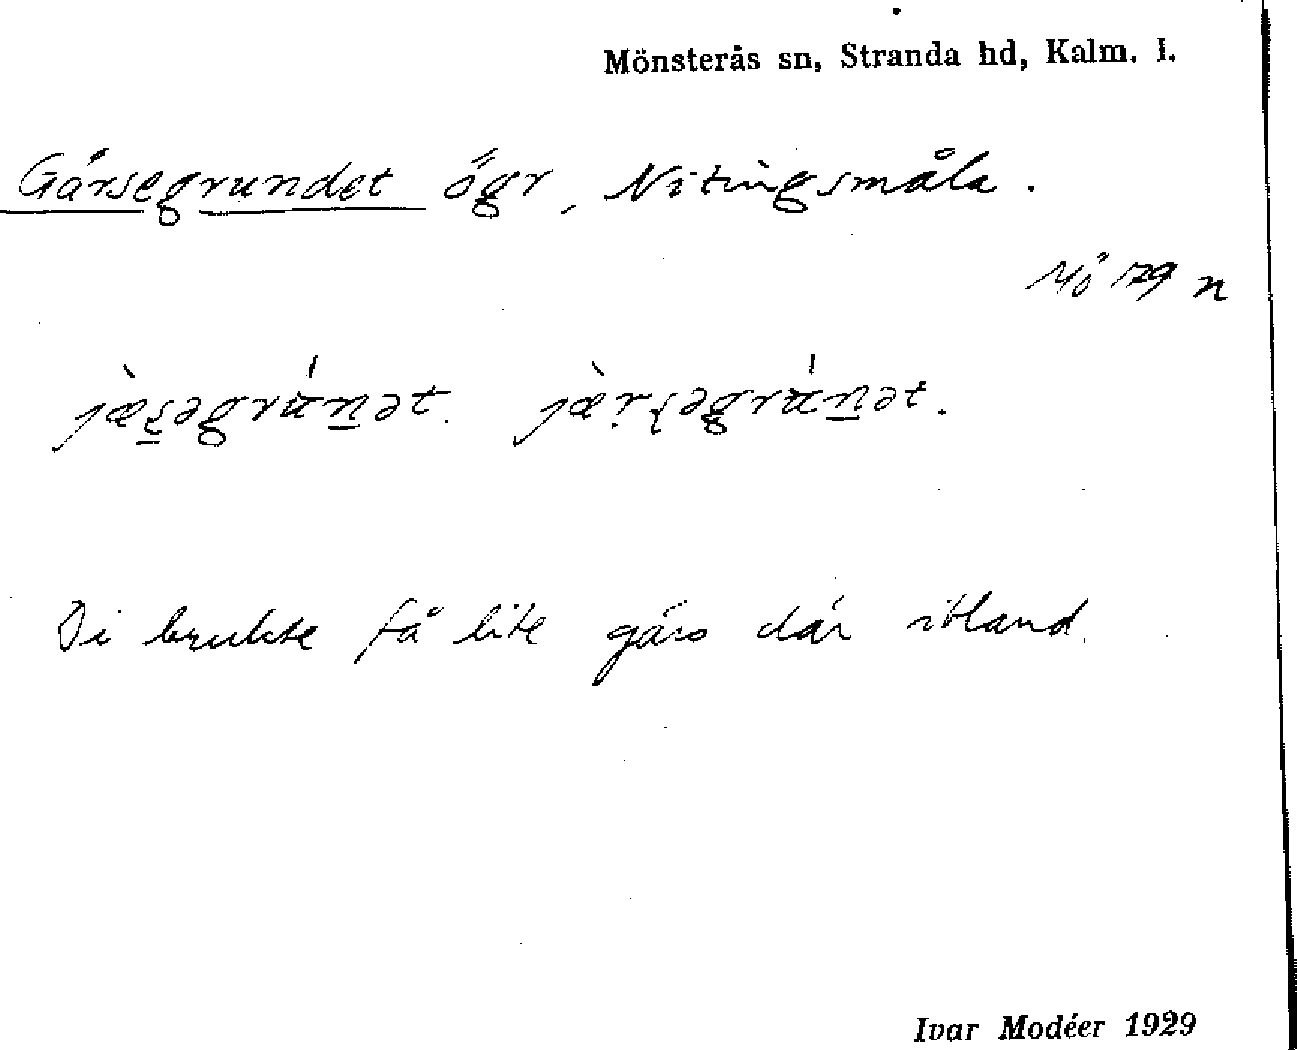 Mönsterås sn, Stranda hd, Kalm. l.
Gärsegrundet ögr, Nötingsmåla.
Mö 179 n
jæ̀ṣəgrán̲ət. jæ̀r̥ʂəgrán̲ət.
Di brukte få lite gärs där ibland.
Ivar Modéer 1929